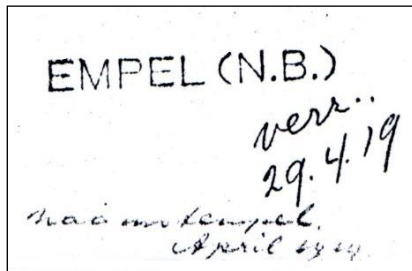 EMPEL (N.B.)
verz..
29.4.19
naamstempel.
April 1919.